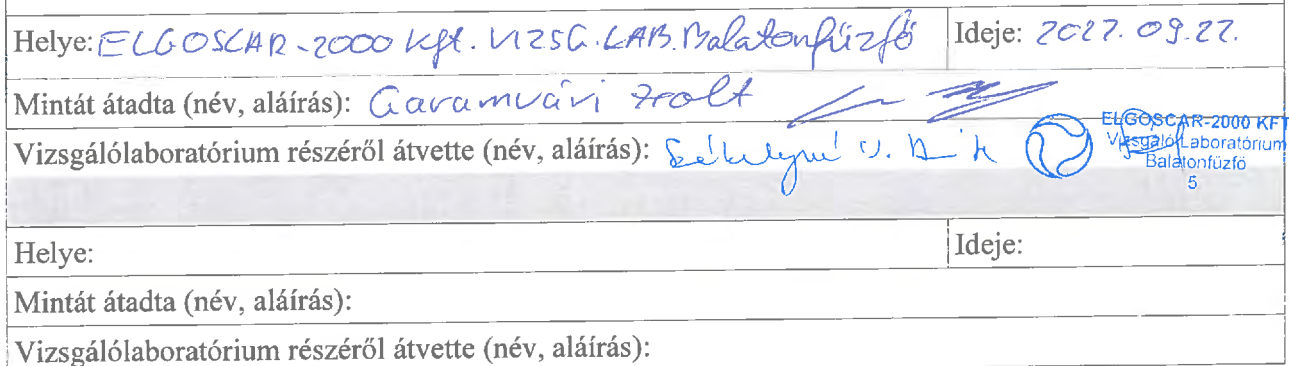 Helye: ELGOSCAR-2000 Kft. VIZSG. LAB. Balatonfűzfő Ideje: 2022. 09. 22.
Mintát átadta (név, aláírás): Garamvári Zsolt
Vizsgálólaboratórium részéről átvette (név, aláírás): Székelyné
ELGOSCAR-2000 KFT
Vizsgáló Laboratórium
Balatonfűzfő
5
Helye: Ideje:
Mintát átadta (név, aláírás):
Vizsgálólaboratórium részéről átvette (név, aláírás):